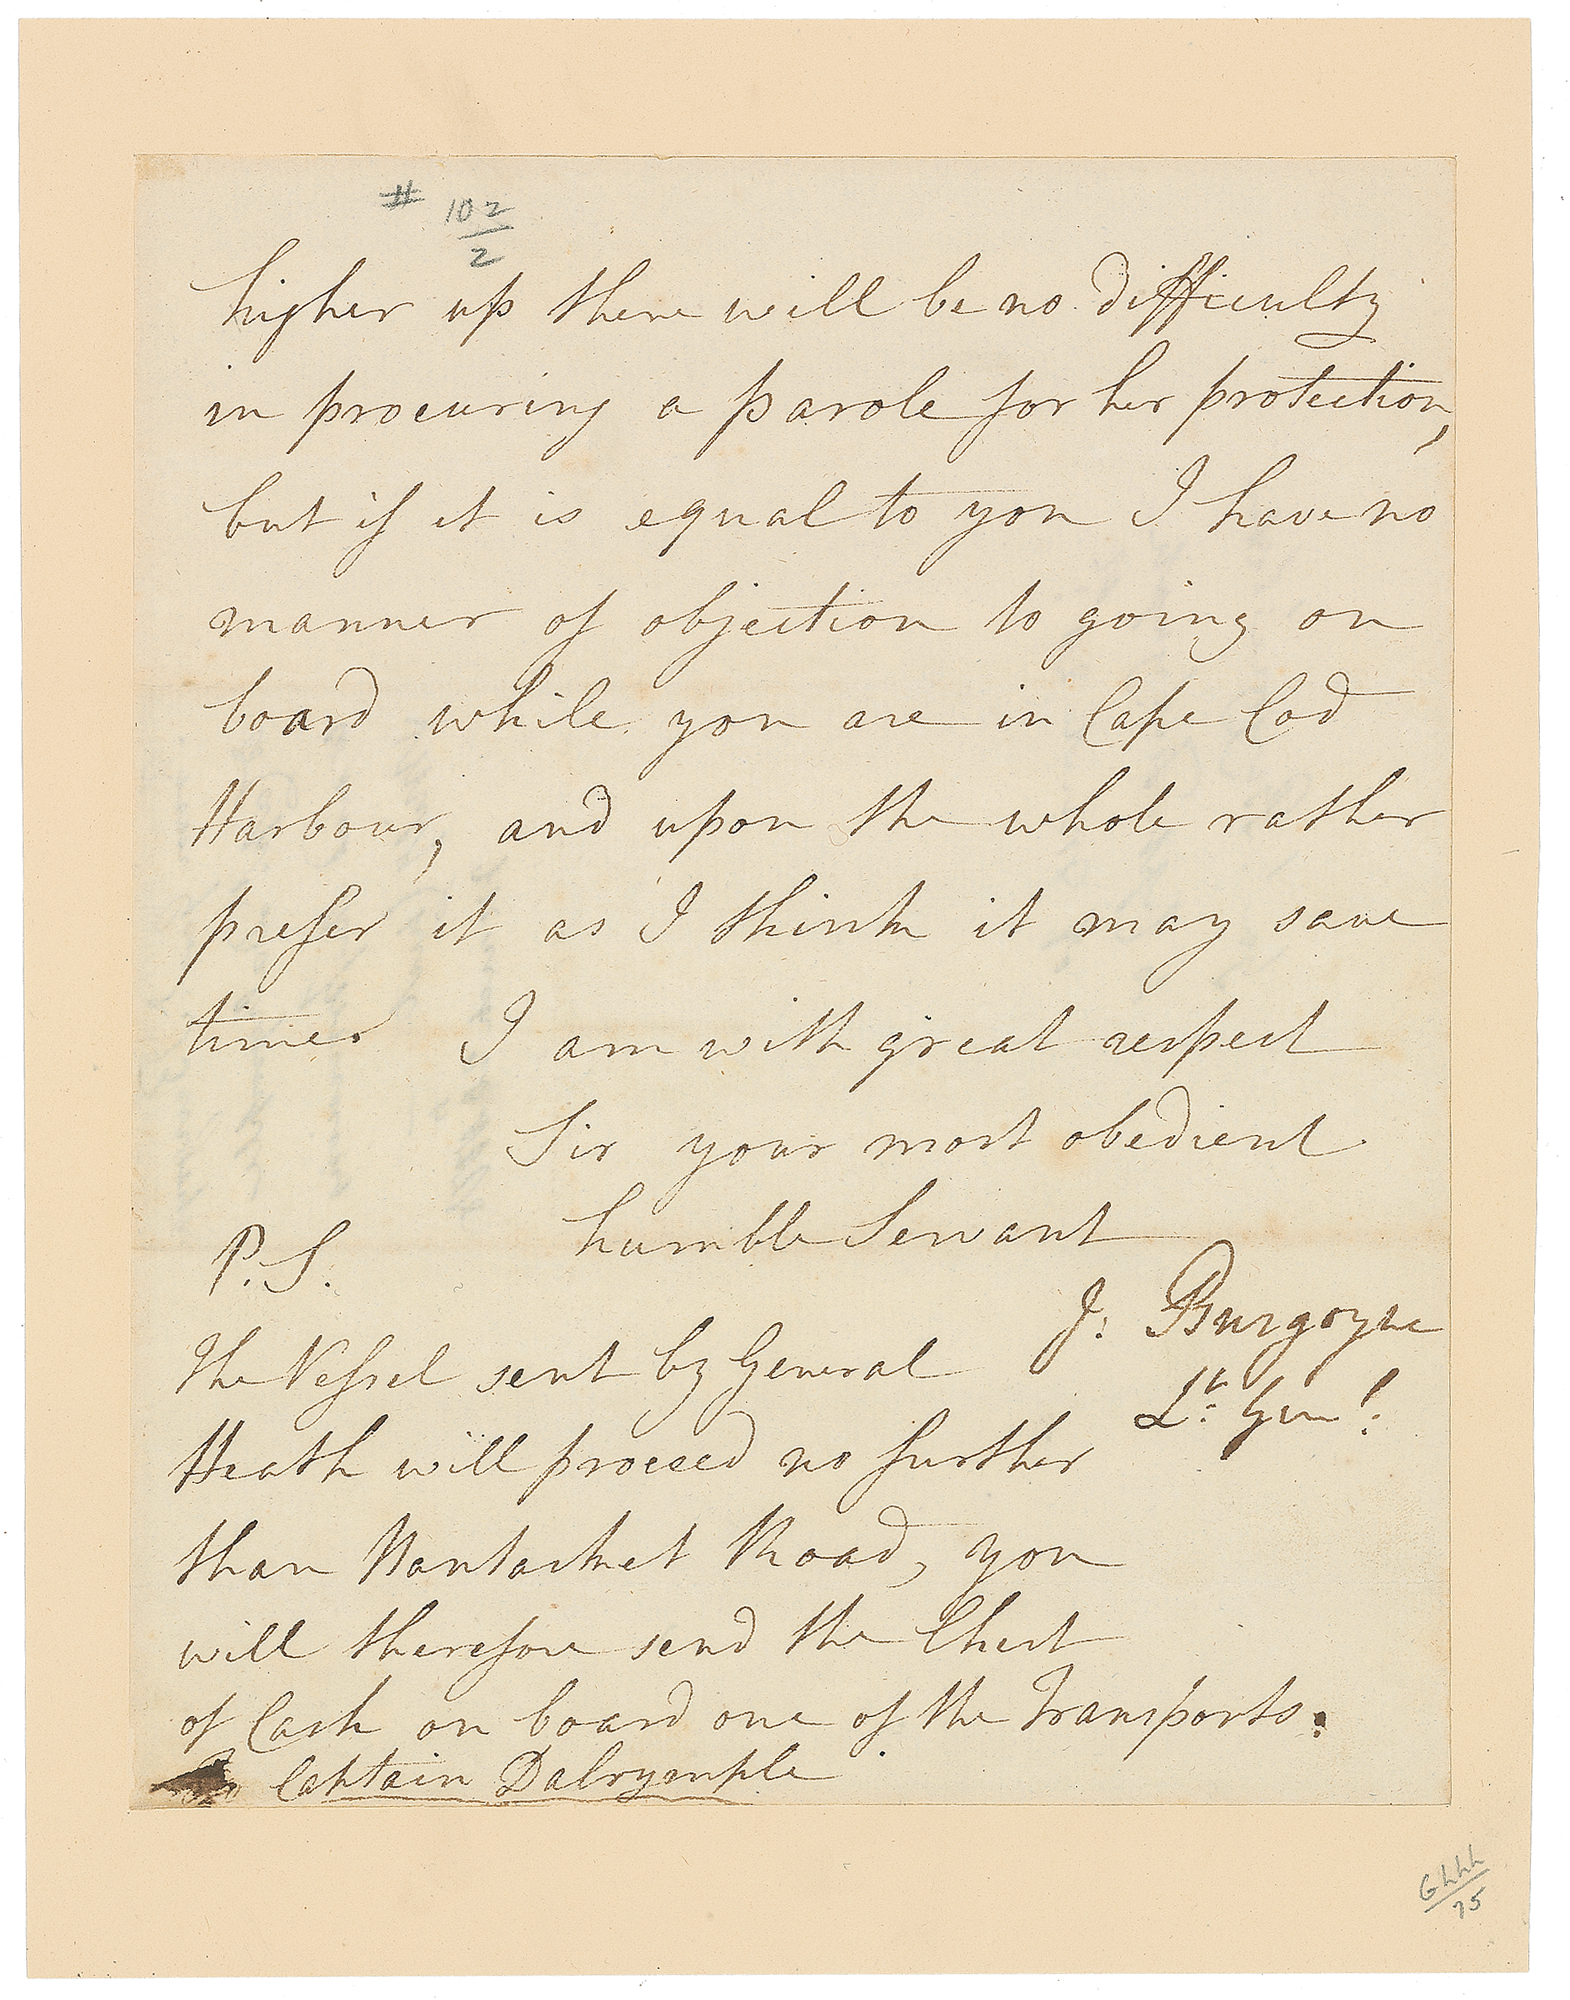 # 102
2
higher up there will be no difficulty
in procuring a parole for her protection,
but if it is equal to you I have no
manner of objection to going on
board while you are in Cape Cod
Harbour, and upon the whole rather
prefer it as I think it may save
time. I am with great respect
Sir your most obedient
humble Servant
J: Burgoyne
Lt: Genl:
P.S.
The Vessel sent by General
Heath will proceed no further
than Nantasket Road, you
will therefore send the Chest
of Cash on board one of the Transports.
Captain Dalrymple